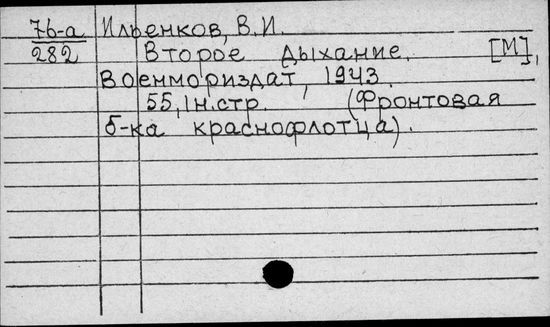 76-а Ильенков, В.И.
282 Второе дыхание. [М],
Военмориздат, 1943.
55, 1н.стр. (Фронтовая
б-ка краснофлотца).